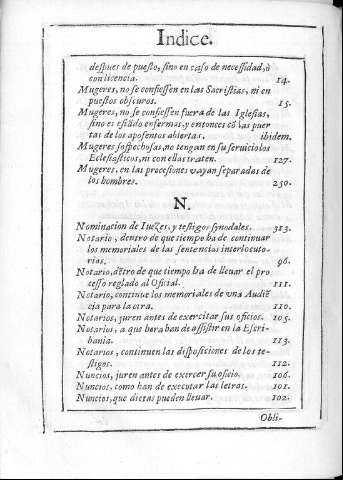 Indice.
despues de puesto, sino en caso de necessidad, ò
con licencia. 14.
Mugeres, no se confiessen en las Sacristias, ni en
puestos obscuros. 15.
Mugeres, no se confiessen fuera de las Iglesias,
sino es estãdo enfermas, y entonces cõ las puer
tas de los aposentos abiertas. ibidem.
Mugeres sospechosas, no tengan en su servicio los
Eclesiasticos, ni con ellas traten. 127.
Mugeres, en las procesiones vayan separadas de
los hombres. 230.
N.
Nominacion de Iuezes, y testigos synodales. 313.
Notario, dentro de que tiempo ha de continuar
los memoriales de las sentencias interlocuto-
rias. 96.
Notario, dẽtro de que tiempo ha de llevar el pro
cesso reglado al Oficial. 111.
Notario, continue los memoriales de vna Audiẽ
cia para la otra. 110.
Notarios, juren antes de exercitar sus oficios. 105.
Notarios, a que hora han de assistir en la Escri-
bania. 113.
Notarios, continuen las disposiciones de los te-
stigos. 112.
Nuncios, juren antes de exercer su oficio. 106.
Nuncios, como han de executar las letras. 101.
Nuncios, que dietas pueden llevar. 102.
Obli-